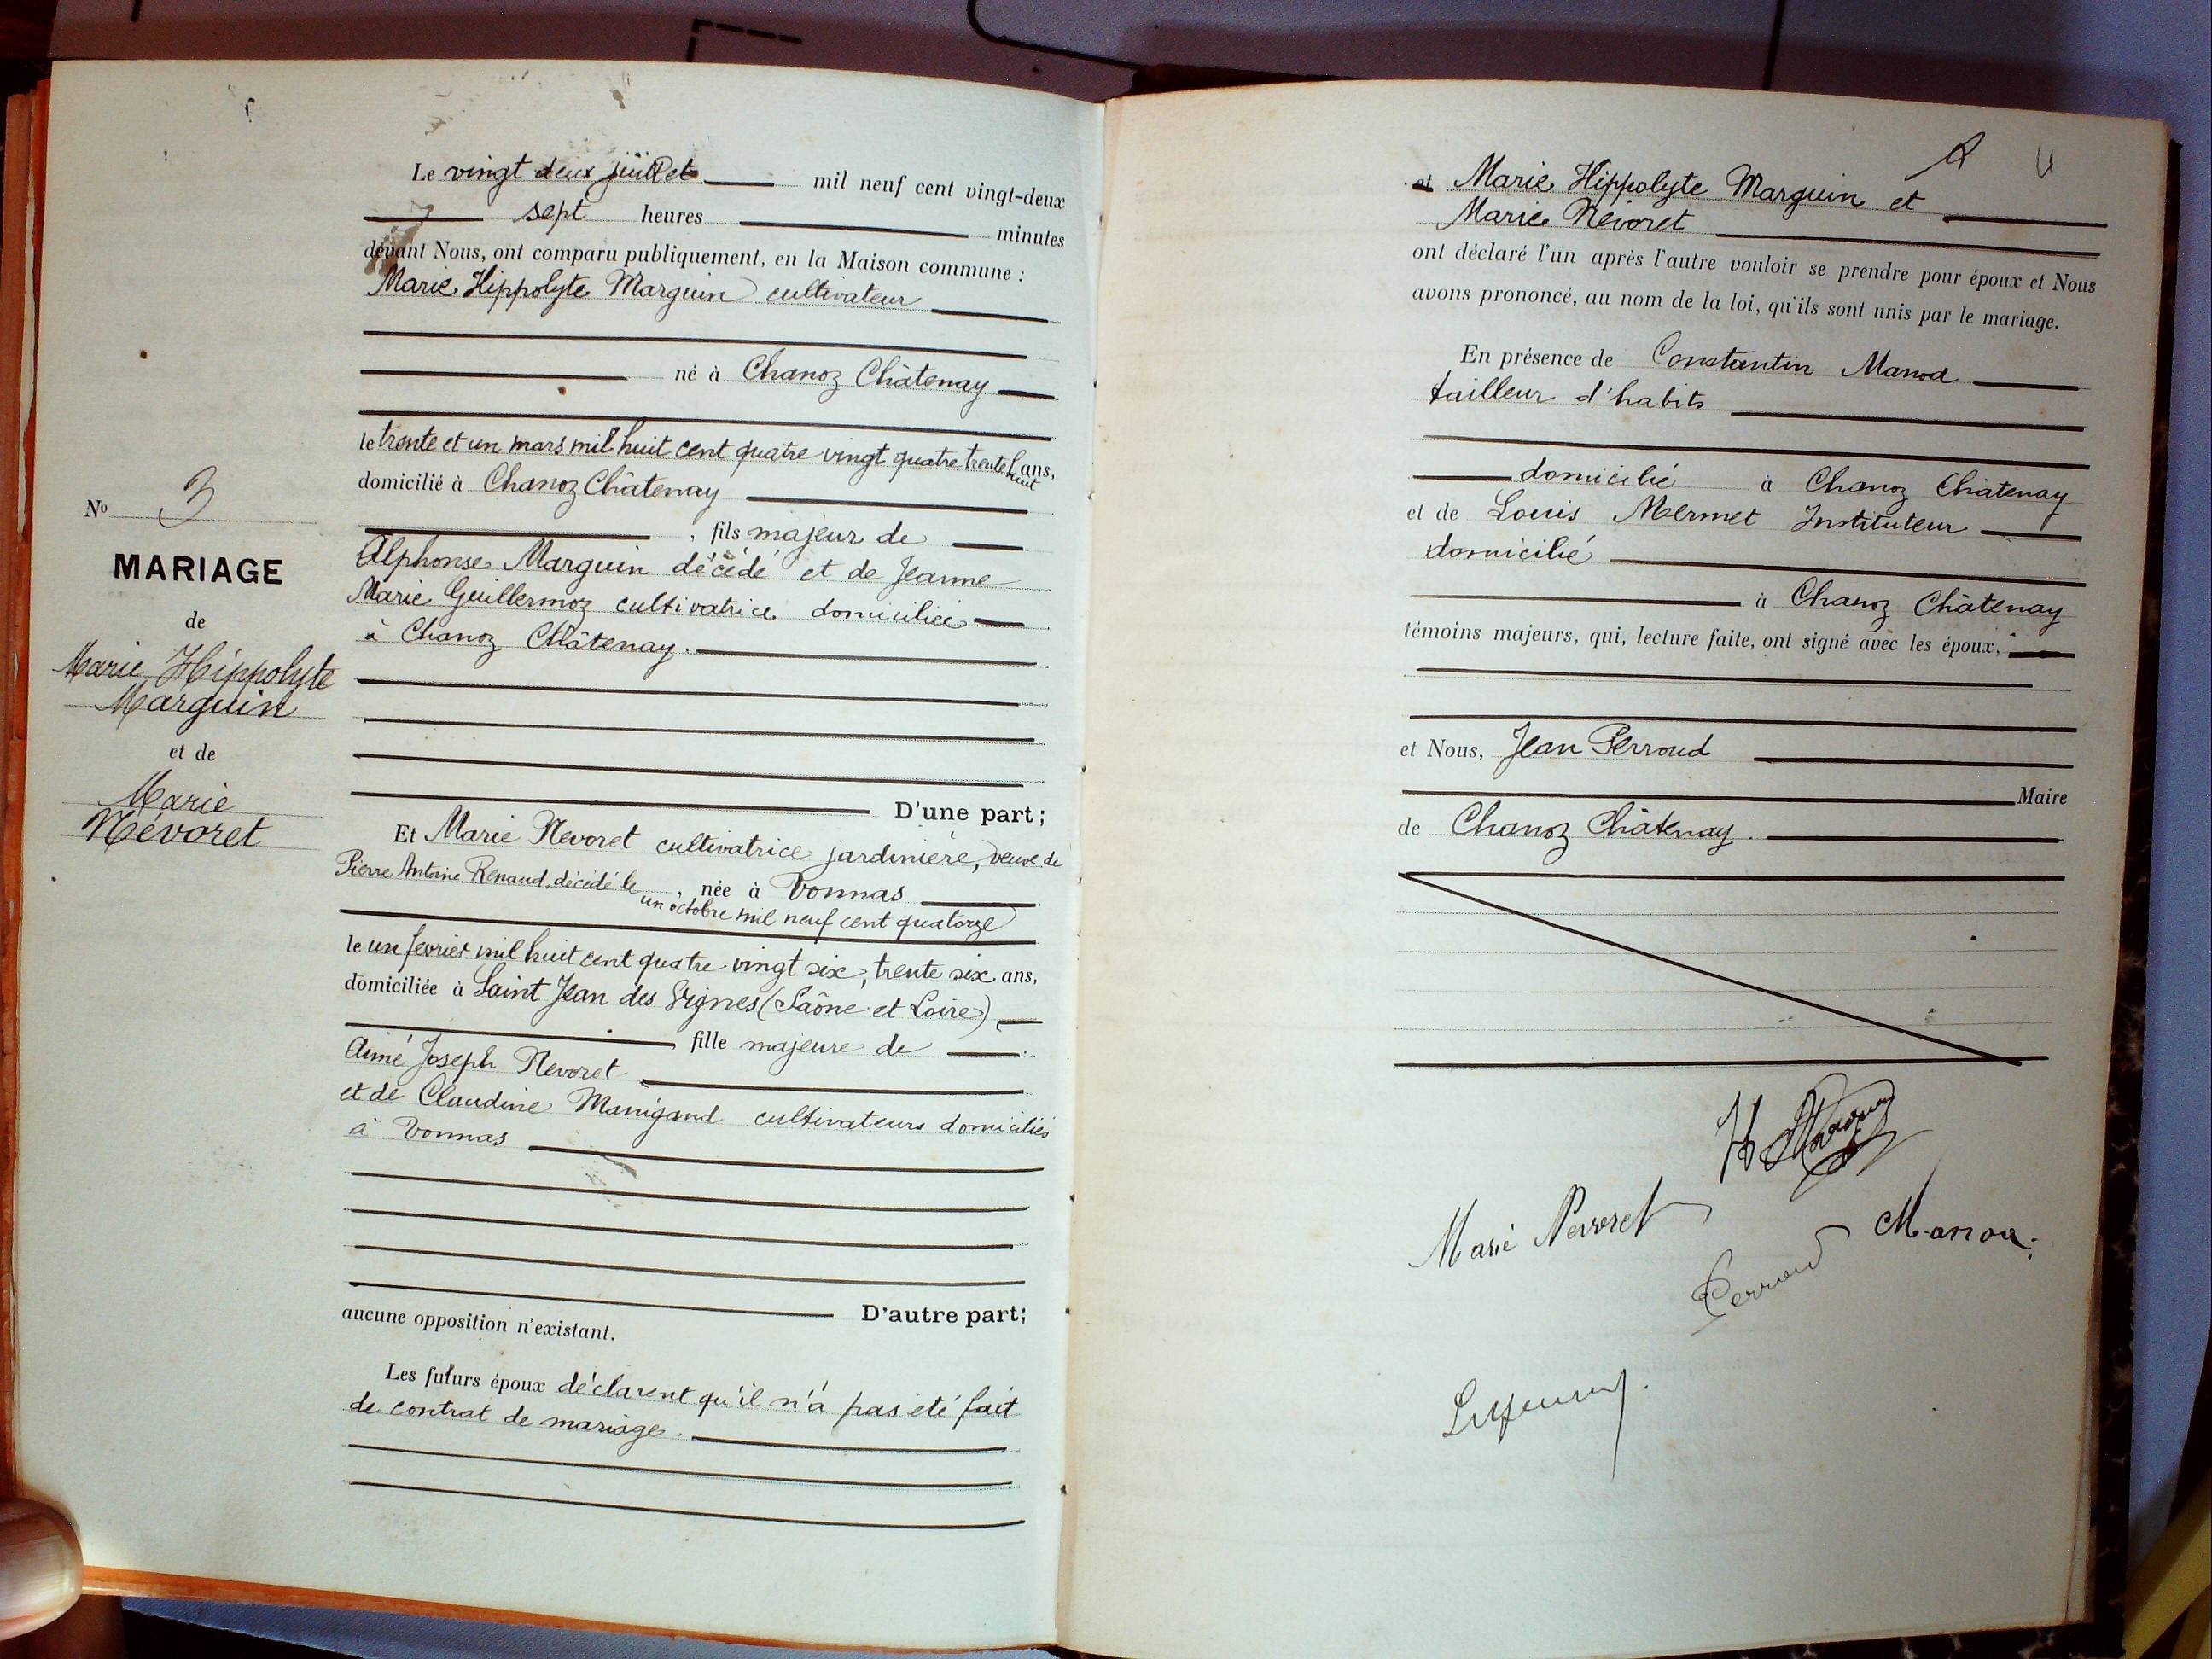 Le vingt deux juillet mil neuf cent vingt-deux
sept heures minutes
devant Nous, ont comparu publiquement, en la Maison commune :
Marie Hippolyte Marguin cultivateur
né à Chanoz Châtenay
le trente et un mars mil huit cent quatre vingt quatre trente huit ans,
domicilié à Chanoz Châtenay
, fils majeur de
Alphonse Marguin décédé et de Jeanne
Marie Guillermoz cultivatrice domiciliée
à Chanoz Châtenay.
No 3
MARIAGE
de
Marie Hippolyte
Marguin
et de
Marie
Névoret
D'une part;
Et Marie Nevoret cultivatrice jardinière, veuve de
Pierre Antoine Renaud, décédé le , née à Vonnas
un octobre mil neuf cent quatorze
le un fevrier mil huit cent quatre vingt six, trente six ans,
domiciliée à Saint Jean des Vignes (Saône et Loire)
fille majeure de
Aimé Joseph Nevoret
et de Claudine Manigand cultivateurs domiciliés
à Vonnas
D'autre part;
aucune opposition n'existant.
Les futurs époux déclarent qu'il n'a pas été fait
de contrat de mariage.
et Marie Hippolyte Marguin et
Marie Névoret
ont déclaré l'un après l'autre vouloir se prendre pour époux et Nous
avons prononcé, au nom de la loi, qu'ils sont unis par le mariage.
En présence de Constantin
tailleur d'habits
domicilié à Chanoz Châtenay
et de Louis Mermet Instituteur
domicilié
à Chanoz Châtenay
témoins majeurs, qui, lecture faite, ont signé avec les époux,
et Nous, Jean Perroud
Maire
de Chanoz Châtenay.
H Marguin
Marie Nevoret
Perroud